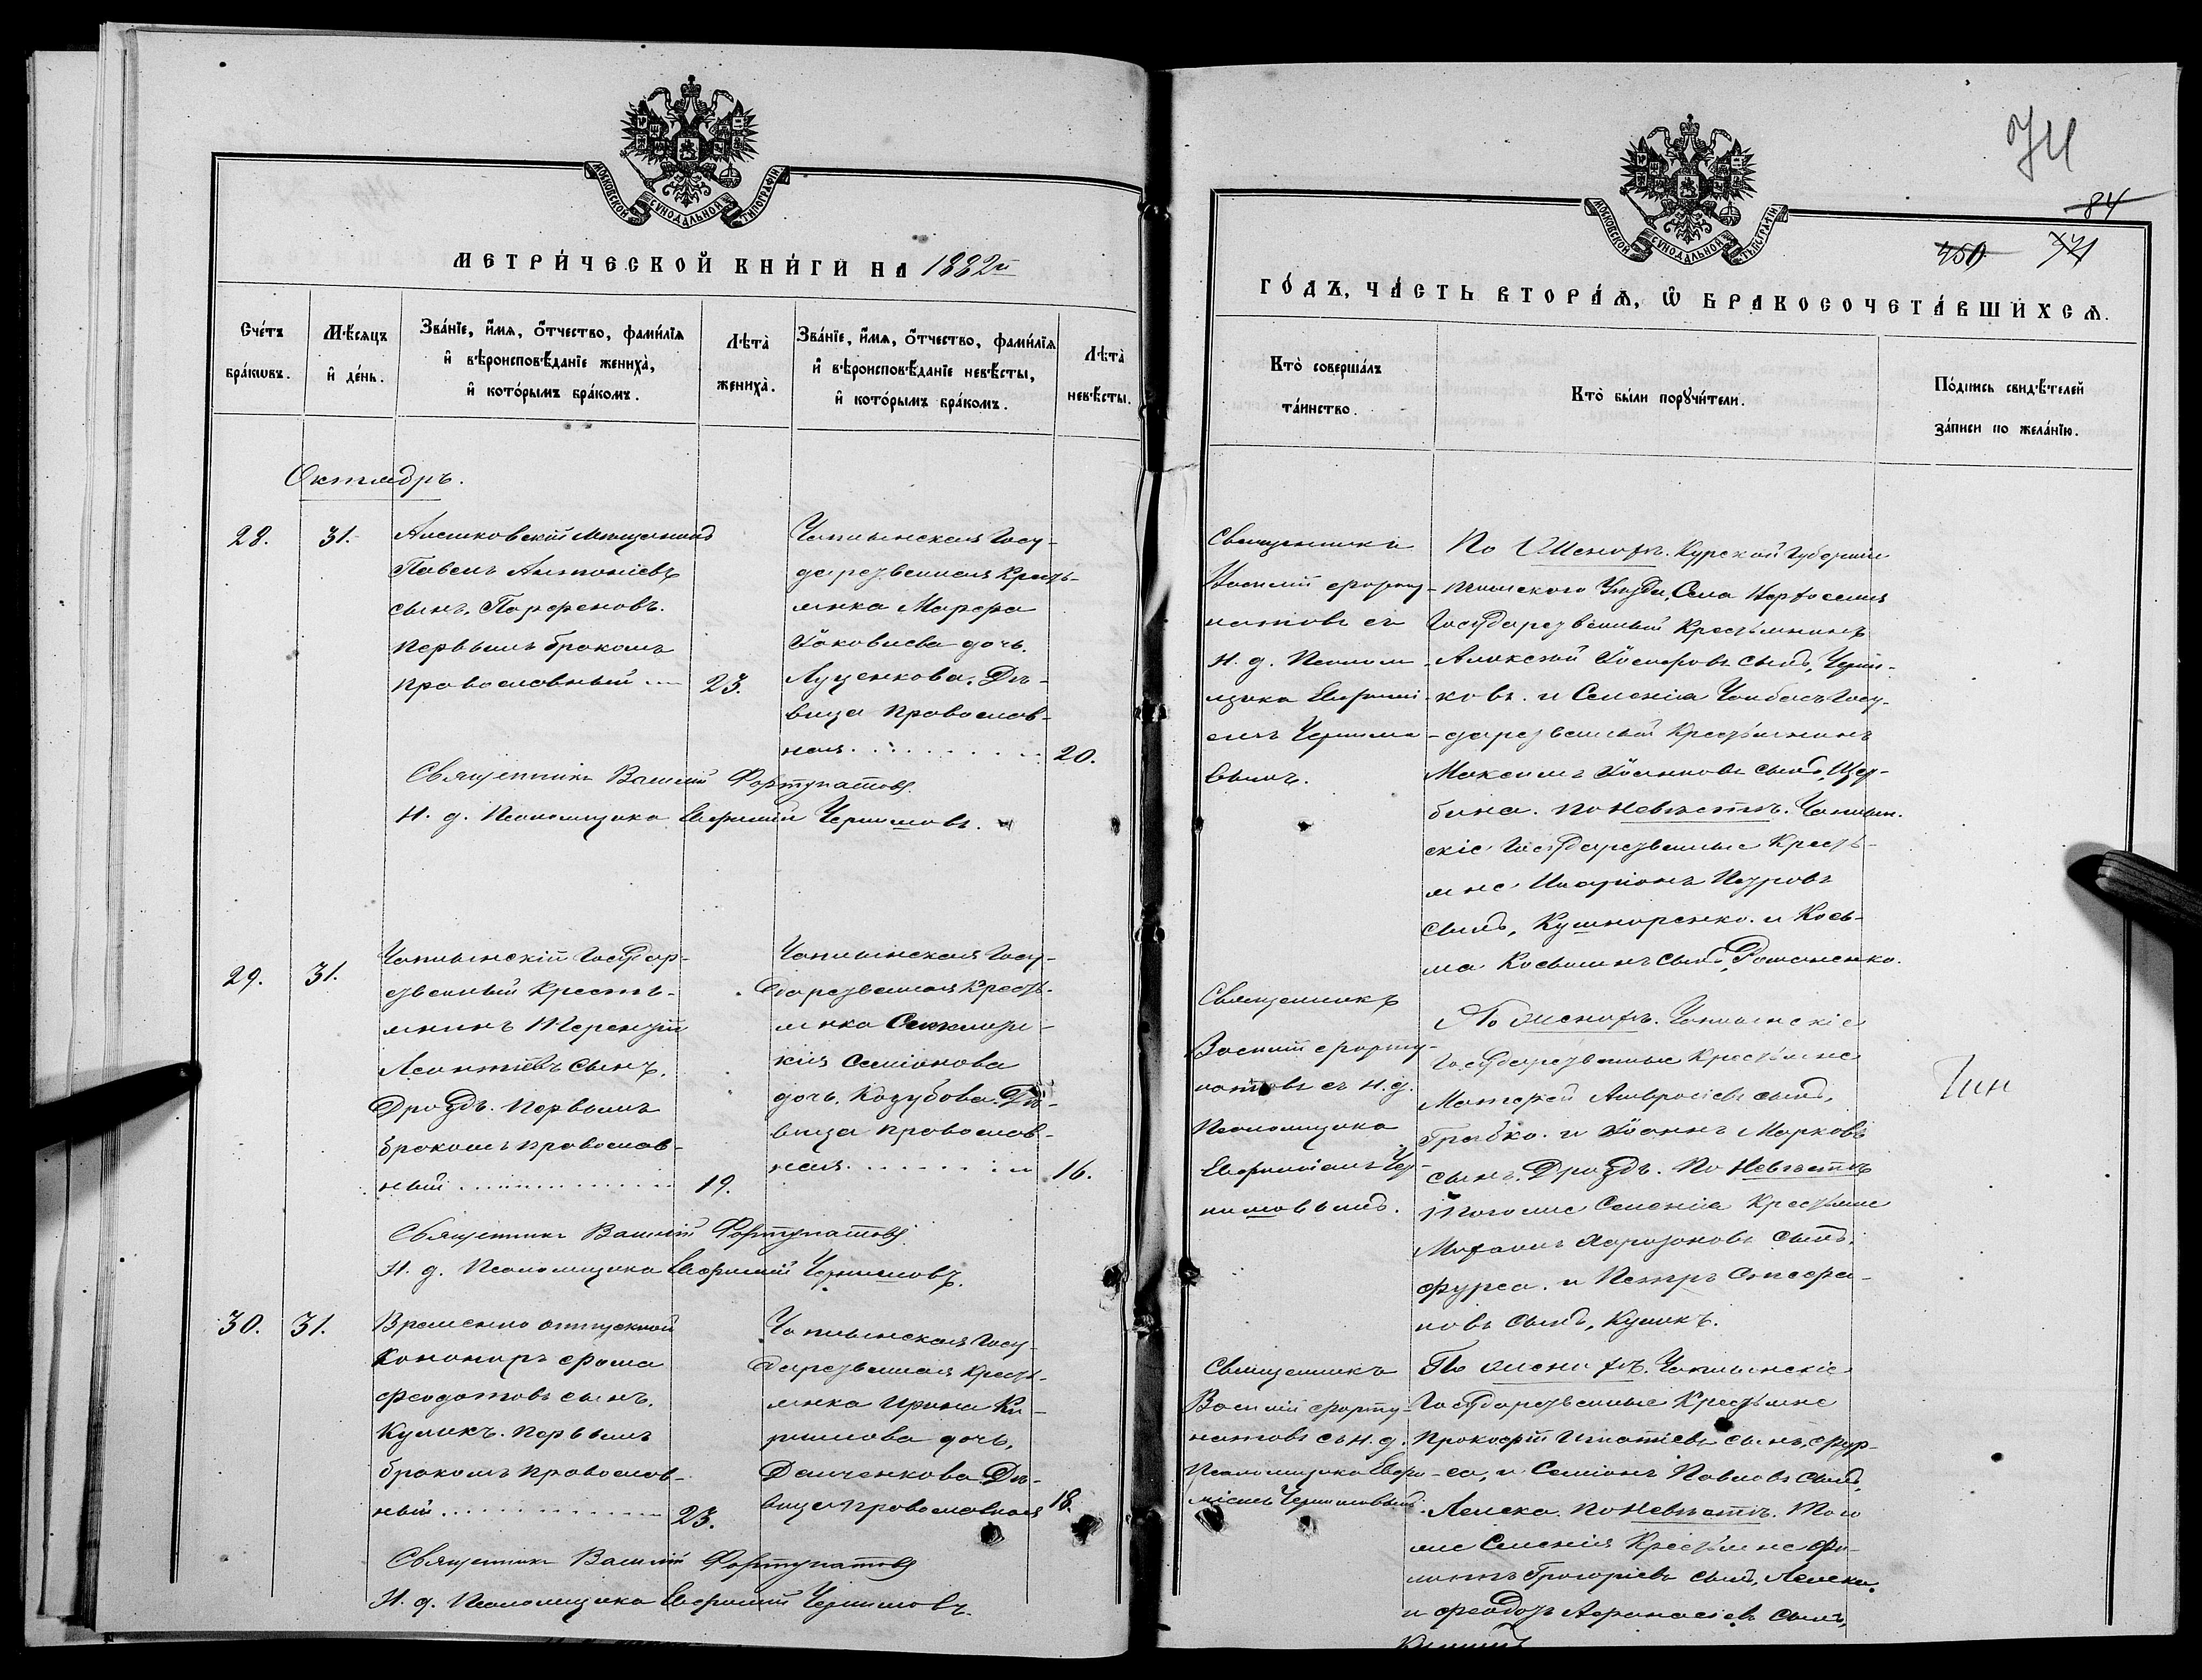 МОСКОВСКОЙ СУНОДАЛЬНОЙ ТИПОГРАФІИ
МЕТРИ́ЧЕСКОЙ КНИ́ГИ НА 1882й
Сче́тъ бра́кωвъ.
Мѣ́сяцъ и҆ де́нь.
Зва́нїе, и҆́мѧ, ѻ҆́тчество, фами́лїѧ и҆ вѣроисповѣ́данїе жениха̀, и҆ кото́рымъ бра́комъ.
Лѣта̀ жениха̀.
Зва́нїе, и҆́мѧ, ѻ҆́тчество, фами́лїѧ и҆ вѣроисповѣ́данїе невѣ́сты, и҆ кото́рымъ бра́комъ.
Лѣта̀ невѣ́сты.
Октябрь.
28.
31.
Алешковскій Мещанинъ
Павелъ Антоніевъ
сынъ, Парфеновъ.
первымъ бракомъ
православный
23.
Чаплынская Госу-
дарственная Кресть-
янка Марфа
Іаковлева дочь.
Луценкова. Дѣ-
вица православ-
ная
20.
Священникъ Василій Фортунатовъ
И. д. Псаломщика Евфимій Чернышовъ.
29.
31.
Чаплынскій Государ-
ственный Кресть-
янинъ Терентій
Леонтіевъ сынъ.
Дроздъ. первымъ
бракомъ православ-
ный
19.
Чаплынская Госу-
дарственная Кресть-
янка
Симіонова
дочь. Козубова. Дѣ-
вица православ-
ная
16.
Священникъ Василій Фортунатовъ
И. д. Псаломщика Евфимій Чернышовъ.
30.
31.
Временно отпускной
Канониръ Фома
Феодотовъ сынъ.
Куликъ. первымъ
бракомъ православ-
ный
23.
Чаплынская Госу-
дарственная Кресть-
янка Ирина Ки-
рилова дочь,
Данченкова. Дѣ-
вица православная
18.
Священникъ Василій Фортунатовъ
И. д. Псаломщика Евфимій Чернышовъ.
74
84
450
МОСКОВСКОЙ СУНОДАЛЬНОЙ ТИПОГРАФІИ
ГО́ДЪ, ЧА́СТЬ ВТОРА́Ѧ, Ѽ БРАКОСОЧЕТА́ВШИХСѦ.
Кто̀ соверша́лъ та́инство.
Кто̀ бы́ли порꙋчи́тели.
По́дпись свидѣ́телей за́писи по жела́нїю.
Священникъ
Василій Форту-
натовъ съ
И. д. Псалом-
щика Евфимі-
емъ Черныше-
вымъ.
По Женихѣ. Курской Губерніи
Уѣзда, Села
Государственный Крестьянинъ
Алексій Іосифовъ сынъ,
ковъ. и Селенія Госу-
дарственный Крестьянинъ
Максимъ Іоанновъ сынъ, Щер-
бина. по Невѣстѣ. Чаплын-
скіе Государственные Кресть-
яне Иларіонъ Петровъ
сынъ, Кушнаренко. и Кось-
ма Косьминъ сынъ, Романенко.
Священникъ
Василій Форту-
натовъ съ И. д.
Псаломщика
Евфиміемъ Чер-
нышовымъ.
По Женихѣ. Чаплынскіе
Государственные Крестьяне
Матфей Амвросіевъ сынъ,
Грабко. и Іоаннъ Марковъ
сынъ, Дроздъ. По Невѣстѣ
Того же Селенія Крестьяне
Михаилъ сынъ,
Фурса. и Петръ Стефа-
новъ сынъ, Куликъ.
Священникъ
Василій Форту-
натовъ съ И. д.
Псаломщика Евфи-
міемъ Чернышовымъ
По Женихѣ. Чаплынскіе
Государственные Крестьяне
Прокофій Игнатіевъ сынъ, Фур-
са, и Симіонъ Павловъ сынъ,
Лелека. по Невѣстѣ. Того
же Селенія Крестьяне Фи-
липпъ Григоріевъ сынъ, Лелека.
и Феодоръ Афанасіевъ сынъ,